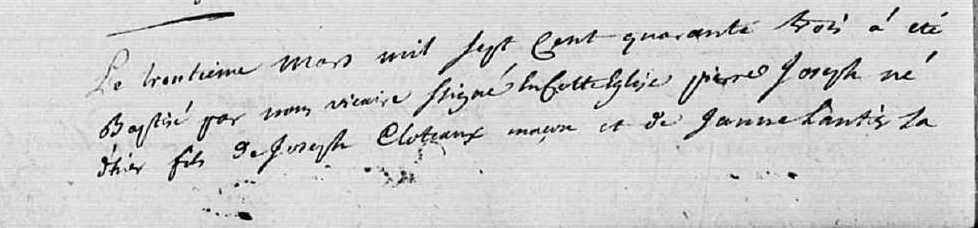 Le trentieme mars mil sept Cent quarante trois á eté
Baptisé par nous vicaire ssigné En Cette Eglise pierre Joseph né
d'hier fils de Joseph Cloteaux maçon et de Janne Lantier La